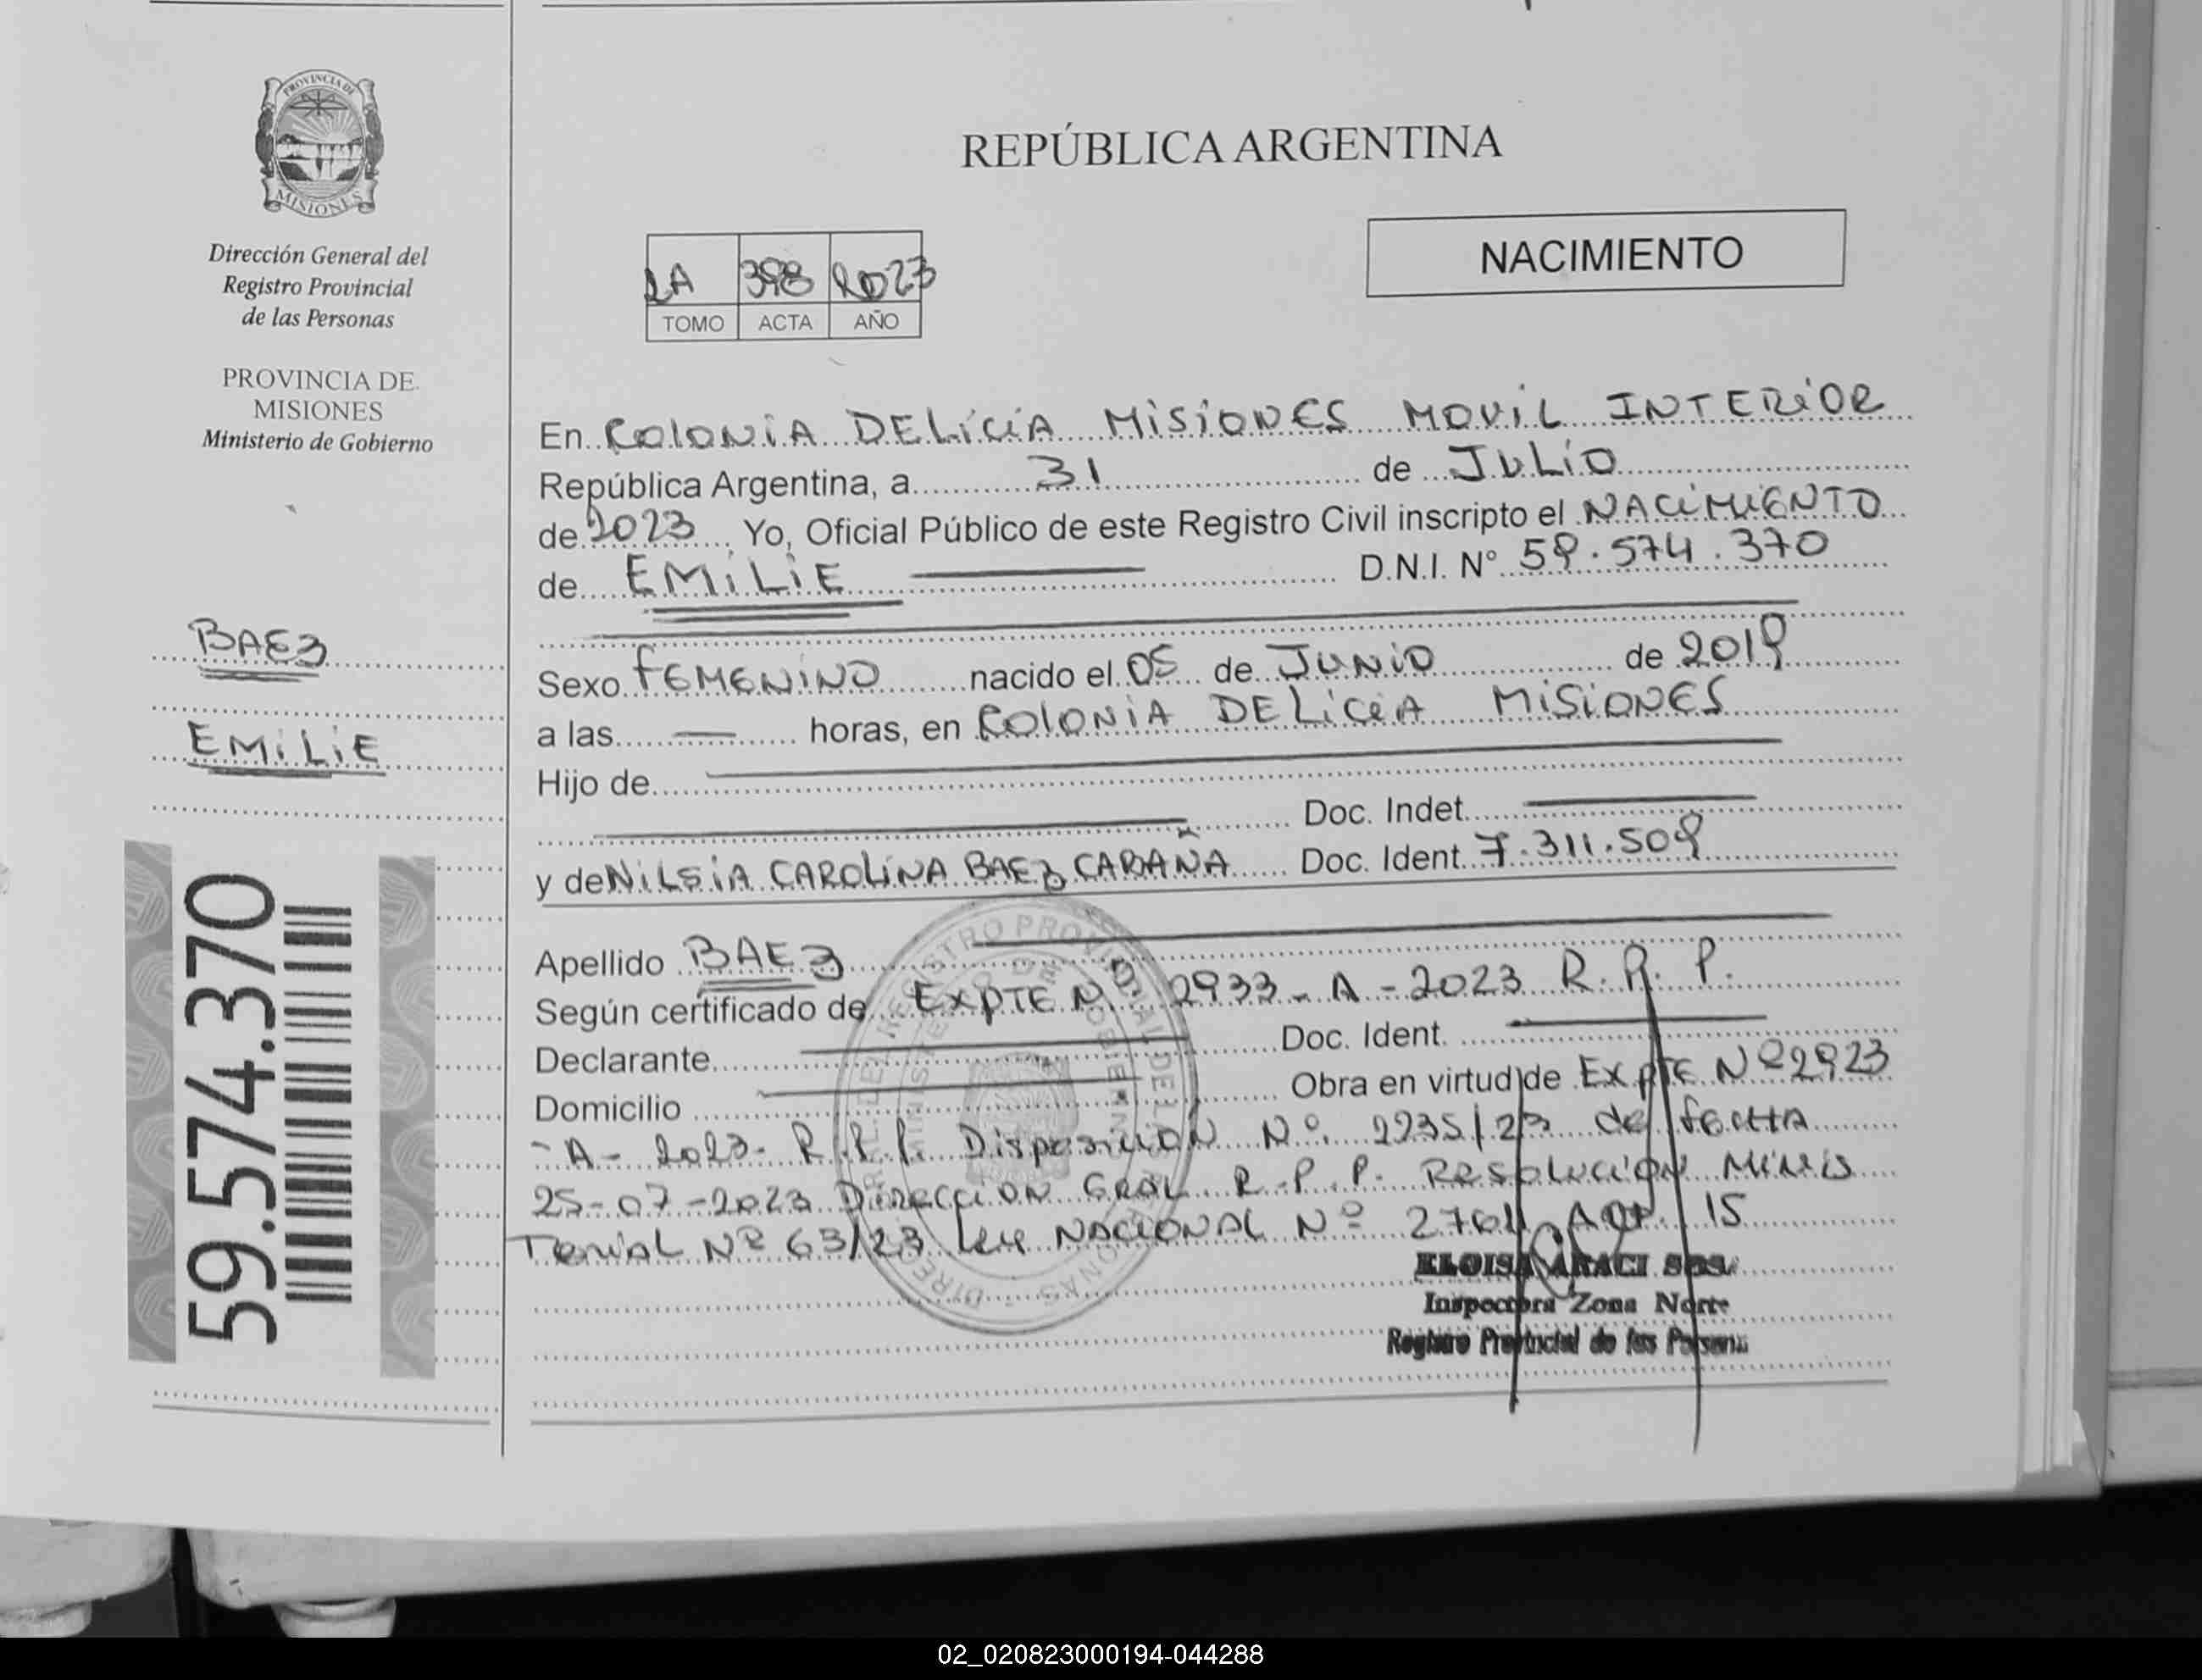 PROVINCIA DE
MISIONES
Dirección General del
Registro Provincial
de las Personas
PROVINCIA DE
MISIONES
Ministerio de Gobierno
BAEZ
EMILIE
59.574.370
REPÚBLICA ARGENTINA
NACIMIENTO
2A 398 2023
TOMO ACTA AÑO
En COLONIA DELICIA MISIONES MOVIL INTERIOR
República Argentina, a 31 de JULIO
de 2023 Yo, Oficial Público de este Registro Civil inscripto el NACIMIENTO
de EMILIE D.N.I. N° 59.574.370
Sexo FEMENINO nacido el 05 de JUNIO de 2019
a las — horas, en COLONIA DELICIA MISIONES
Hijo de
Doc. Indet.
y de NILSIA CAROLINA BAEZ CABAÑA Doc. Ident. 7.311.509
Apellido BAEZ
Según certificado de EXPTE Nº 2933-A-2023 R.P.P.
Declarante Doc. Ident.
Domicilio Obra en virtud de EXPTE Nº 2923
-A-2023- R.P.P. Disposicion Nº 2235/23 de fecha
25-07-2023 Direccion Gral R.P.P. Resolucion Minis
Terial Nº 63/23 Ley Nacional Nº 27611 Art. 15
ELOISA ARACI SOSA
Inspectora Zona Norte
Registro Provincial de las Persona
02_020823000194-044288